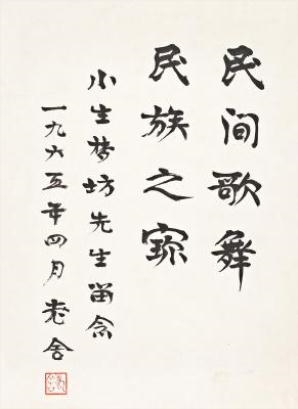 民间歌舞
民族之寳
小生梦坊先生留念
一九六五年四月老舍